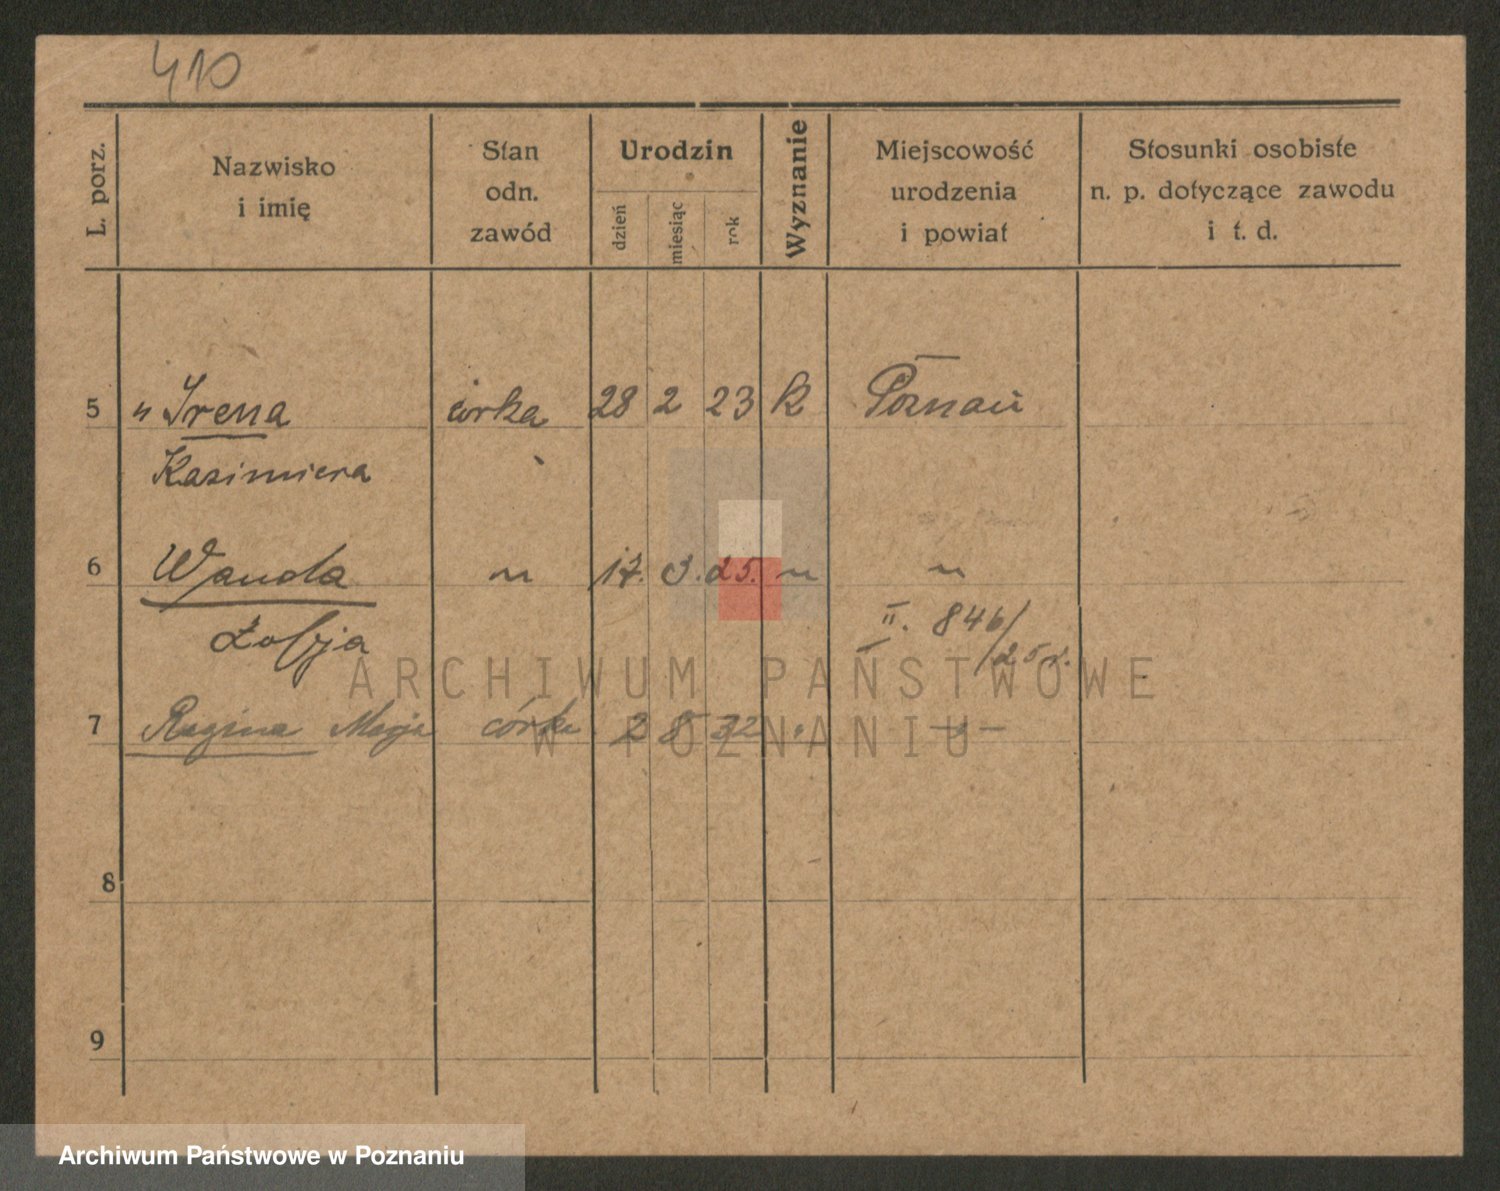 410
L. porz.
Nazwisko
i imię
Stan
odn.
zawód
Urodzin
dzień
miesiąc
rok
Wyznanie
Miejscowość
urodzenia
i powiat
Stosunki osobiste
n. p. dotyczące zawodu
i t. d.
5 " Irena córka 28 2 23 k Poznań
Kazimiera
6 Wanda " 17. 3. 25. " "
Zofja
II. 846/25 r.
7 Regina Marja córka 2 8 32 " - " -
8
9
ARCHIWUM PAŃSTWOWE
W POZNANIU
Archiwum Państwowe w Poznaniu